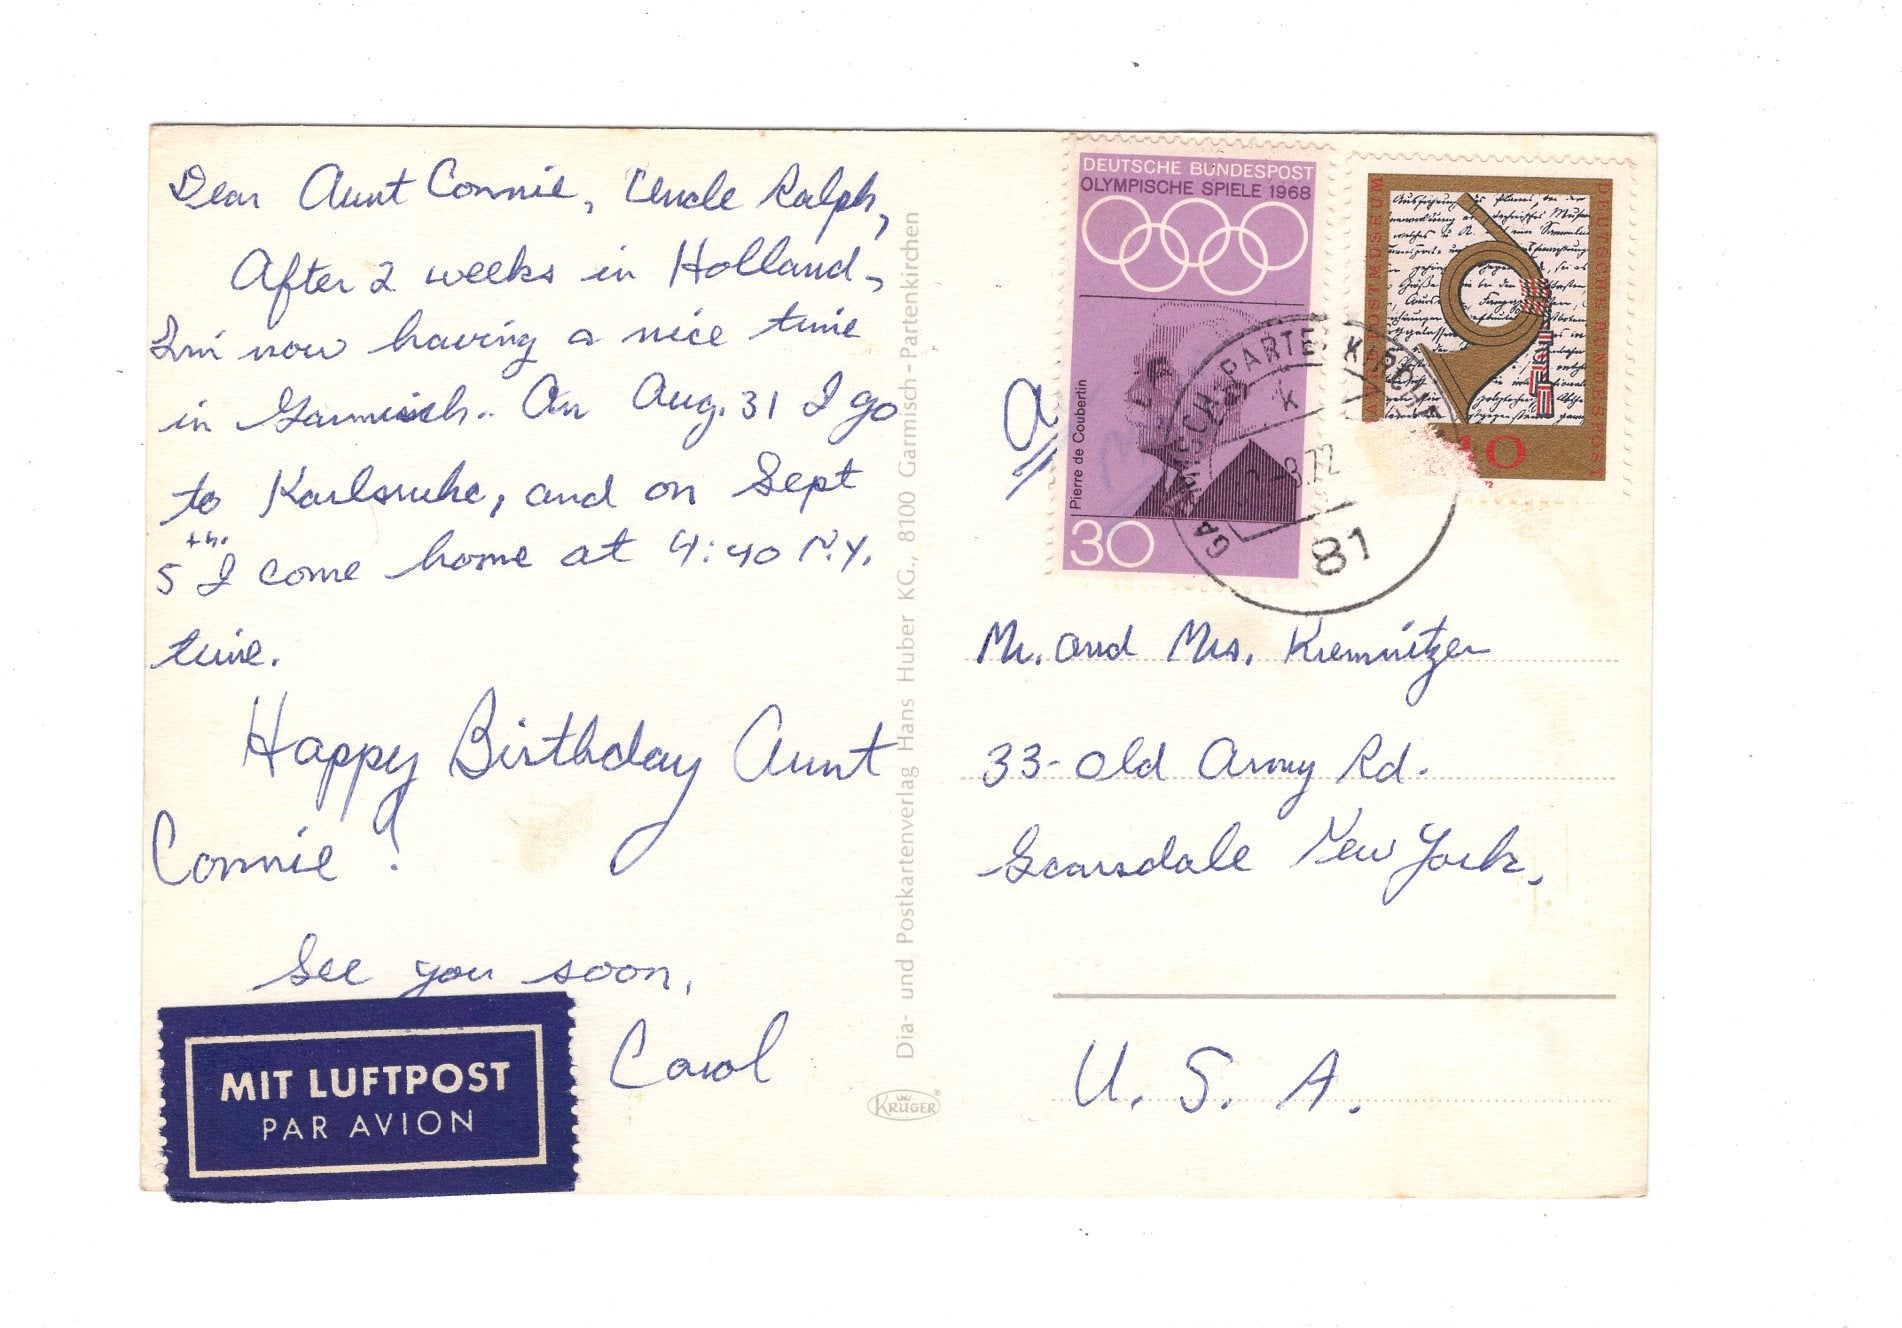 Dear Aunt Connie, Uncle Ralph,
After 2 weeks in Holland,
I'm now having a nice time
in Garmisch. On Aug. 31 I go
to Karlsruhe, and on Sept
5th. I come home at 4:40 N.Y.
time.
Happy Birthday Aunt
Connie!
See you soon,
Carol
MIT LUFTPOST
PAR AVION
Dia- und Postkartenverlag Hans Huber KG., 8100 Garmisch-Partenkirchen
KRÜGER®
DEUTSCHE BUNDESPOST
OLYMPISCHE SPIELE 1968
Pierre de Coubertin
30
POSTMUSEUM
DEUTSCHE BUNDESPOST
GARMISCH-PARTENKIRCHEN
k
8.72
81
Mr. and Mrs. Kremnitzer
33-Old Army Rd.
Scarsdale New York,
U. S. A.